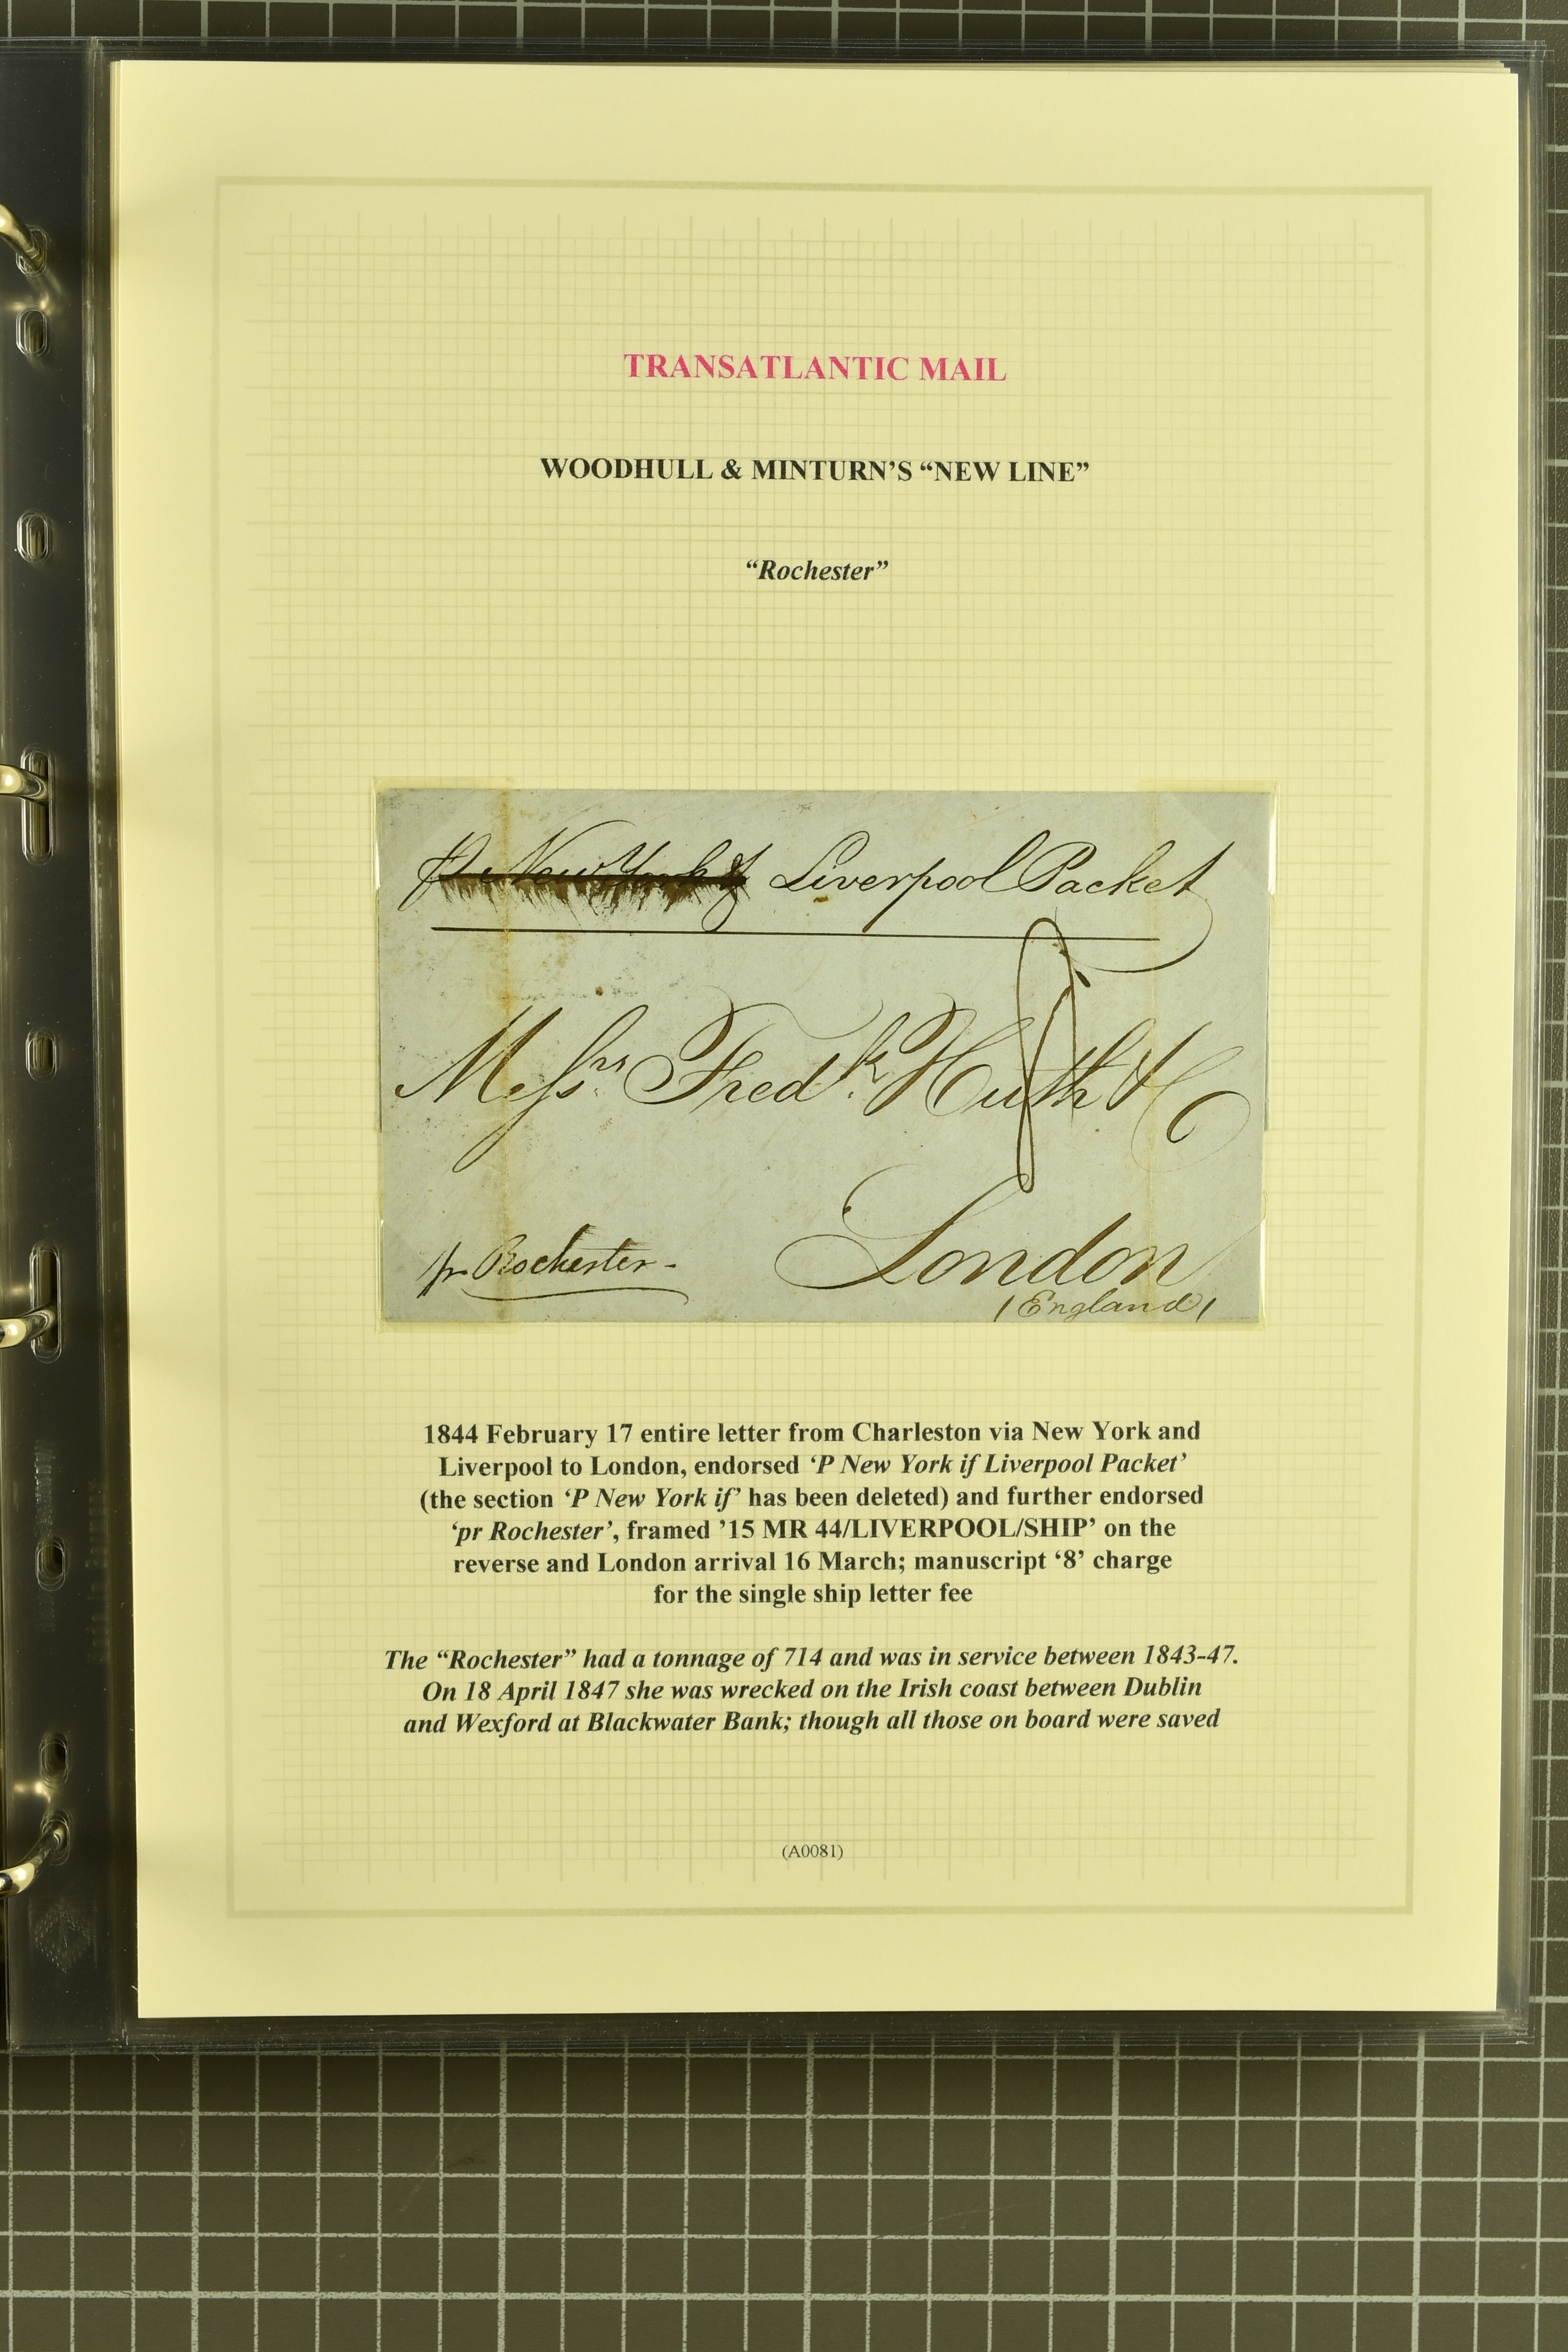 TRANSATLANTIC MAIL
WOODHULL & MINTURN'S “NEW LINE”
“Rochester”
P New York if Liverpool Packet
8
Messrs. Fredk. Huth & Co
London
(England)
pr Rochester -
1844 February 17 entire letter from Charleston via New York and
Liverpool to London, endorsed ‘P New York if Liverpool Packet’
(the section ‘P New York if’ has been deleted) and further endorsed
‘pr Rochester’, framed ’15 MR 44/LIVERPOOL/SHIP’ on the
reverse and London arrival 16 March; manuscript ‘8’ charge
for the single ship letter fee
The “Rochester” had a tonnage of 714 and was in service between 1843-47.
On 18 April 1847 she was wrecked on the Irish coast between Dublin
and Wexford at Blackwater Bank; though all those on board were saved
(A0081)